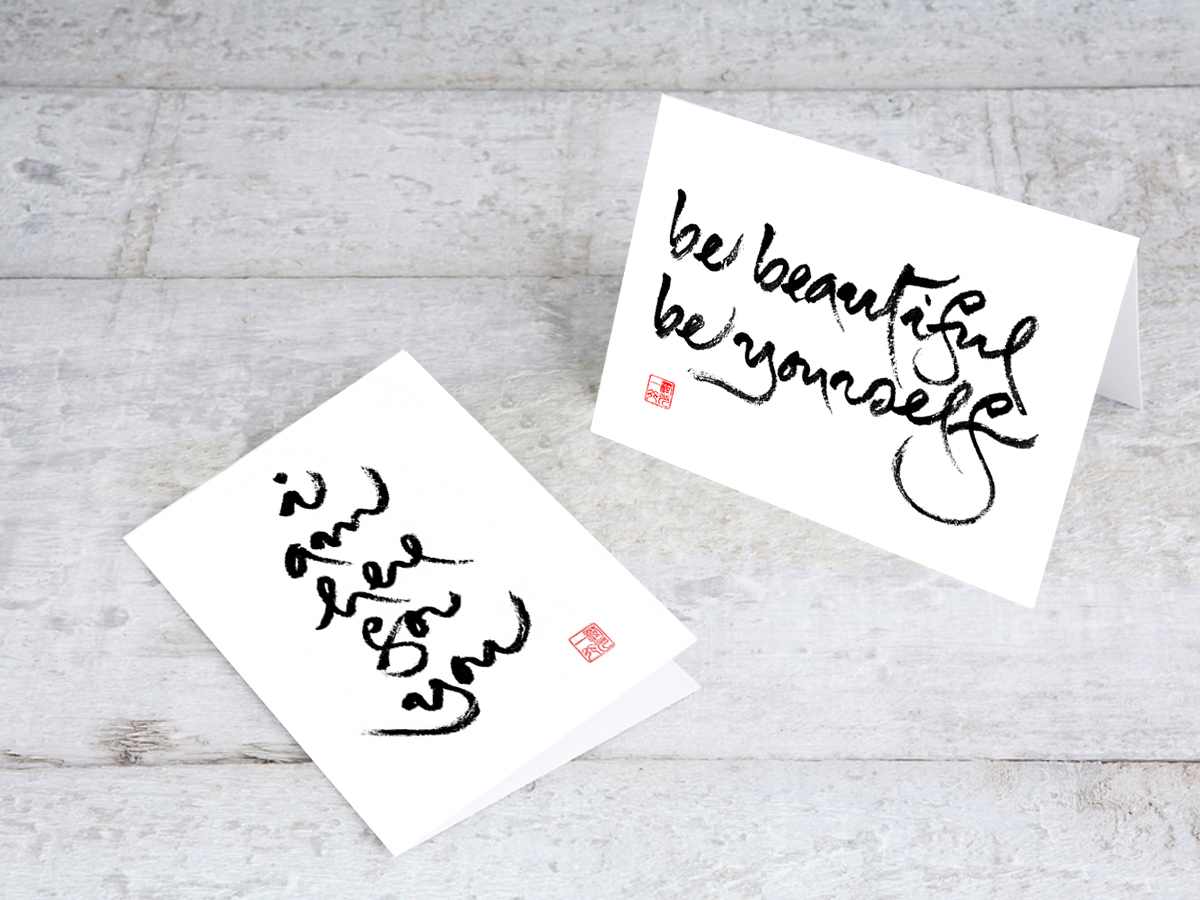 be beautiful
be yourself
i
am
here
for
you